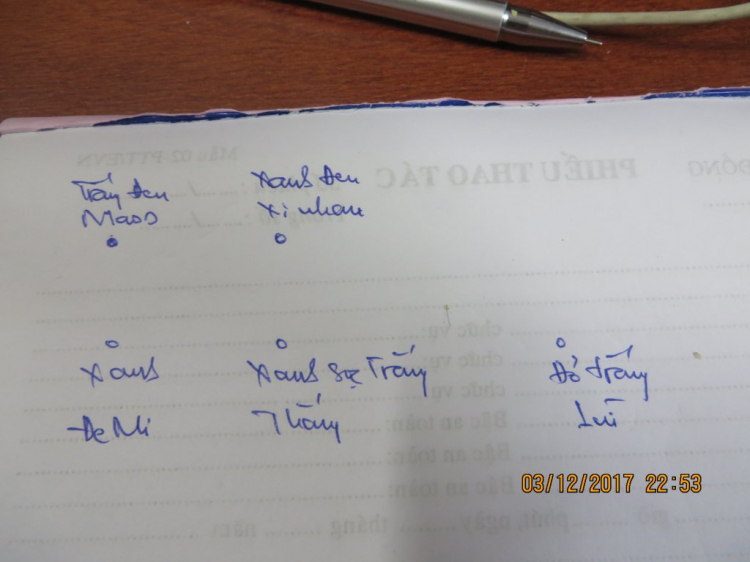 Trắng Đen
Mass
Xanh Đen
Xi nhan
Xanh
Đe Mi
Xanh sọc Trắng
Thắng
Đỏ trắng
Lui
Mẫu 02-PTT/EVN
PHIẾU THAO TÁC
ĐỒNG
chức vụ:
chức vụ:
chức vụ
Bậc an toàn:
Bậc an toàn:
Bậc an toàn:
giờ phút, ngày tháng năm
03/12/2017 22:53